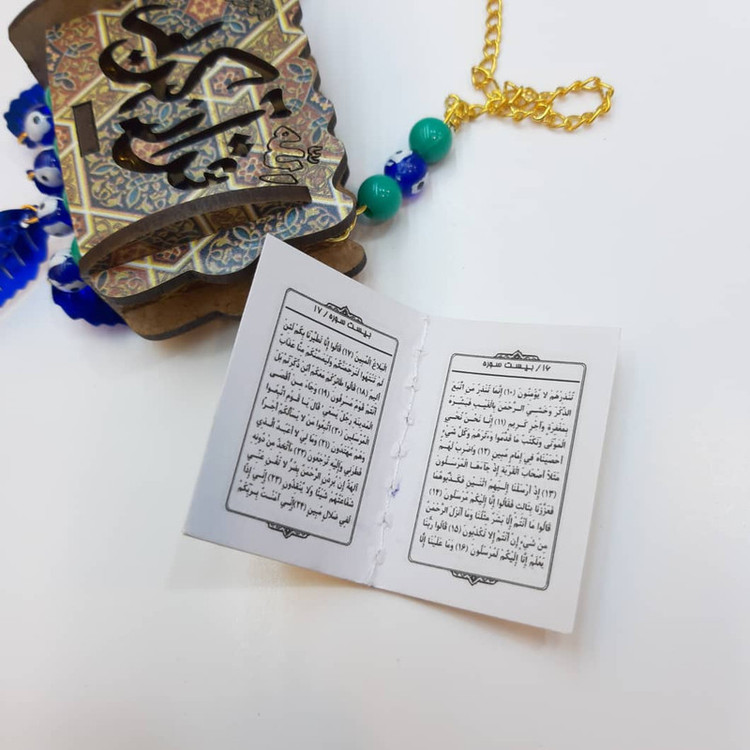 الله
۱۶/ بیست سوره
تُنذِرْهُمْ لا يُؤْمِنُونَ (۱۰) إِنَّمَا تُنذِرُ مَنِ اتَّبَعَ
الذِّكْرَ وَخَشِيَ الرَّحْمَنَ بِالْغَيْبِ فَبَشِّرْهُ
بِمَغْفِرَةٍ وَأَجْرٍ كَرِيمٍ (۱۱) إِنَّا نَحْنُ نُحْيِي
الْمَوْتَى وَنَكْتُبُ مَا قَدَّمُوا وَآثَارَهُمْ وَكُلَّ شَيْءٍ
أَحْصَيْنَاهُ فِي إِمَامٍ مُّبِينٍ (۱۲) وَاضْرِبْ لَهُم
مَّثَلاً أَصْحَابَ الْقَرْيَةِ إِذْ جَاءَهَا الْمُرْسَلُونَ
(۱۳) إِذْ أَرْسَلْنَا إِلَيْهِمُ اثْنَيْنِ فَكَذَّبُوهُمَا
فَعَزَّزْنَا بِثَالِثٍ فَقَالُوا إِنَّا إِلَيْكُم مُّرْسَلُونَ (۱۴)
قَالُوا مَا أَنتُمْ إِلَّا بَشَرٌ مِّثْلُنَا وَمَا أَنزَلَ الرَّحْمَنُ
مِن شَيْءٍ إِنْ أَنتُمْ إِلَّا تَكْذِبُونَ (۱۵) قَالُوا رَبُّنَا
يَعْلَمُ إِنَّا إِلَيْكُمْ لَمُرْسَلُونَ (۱۶) وَمَا عَلَيْنَا إِلَّا
بیست سوره / ۱۷
الْبَلَاغُ الْمُبِينُ (۱۷) قَالُوا إِنَّا تَطَيَّرْنَا بِكُمْ لَئِن
لَّمْ تَنتَهُوا لَنَرْجُمَنَّكُمْ وَلَيَمَسَّنَّكُم مِّنَّا عَذَابٌ
أَلِيمٌ (۱۸) قَالُوا طَائِرُكُم مَّعَكُمْ أَئِن ذُكِّرْتُم بَلْ
أَنتُمْ قَوْمٌ مُّسْرِفُونَ (۱۹) وَجَاءَ مِنْ أَقْصَى
الْمَدِينَةِ رَجُلٌ يَسْعَى قَالَ يَا قَوْمِ اتَّبِعُوا
الْمُرْسَلِينَ (۲۰) اتَّبِعُوا مَن لَّا يَسْأَلُكُمْ أَجْرًا
وَهُم مُّهْتَدُونَ (۲۱) وَمَا لِي لَا أَعْبُدُ الَّذِي
فَطَرَنِي وَإِلَيْهِ تُرْجَعُونَ (۲۲) أَأَتَّخِذُ مِن دُونِهِ
آلِهَةً إِن يُرِدْنِ الرَّحْمَنُ بِضُرٍّ لَّا تُغْنِ عَنِّي
شَفَاعَتُهُمْ شَيْئًا وَلَا يُنقِذُونِ (۲۳) إِنِّي إِذًا
لَّفِي ضَلَالٍ مُّبِينٍ (۲۴) إِنِّي آمَنتُ بِرَبِّكُمْ